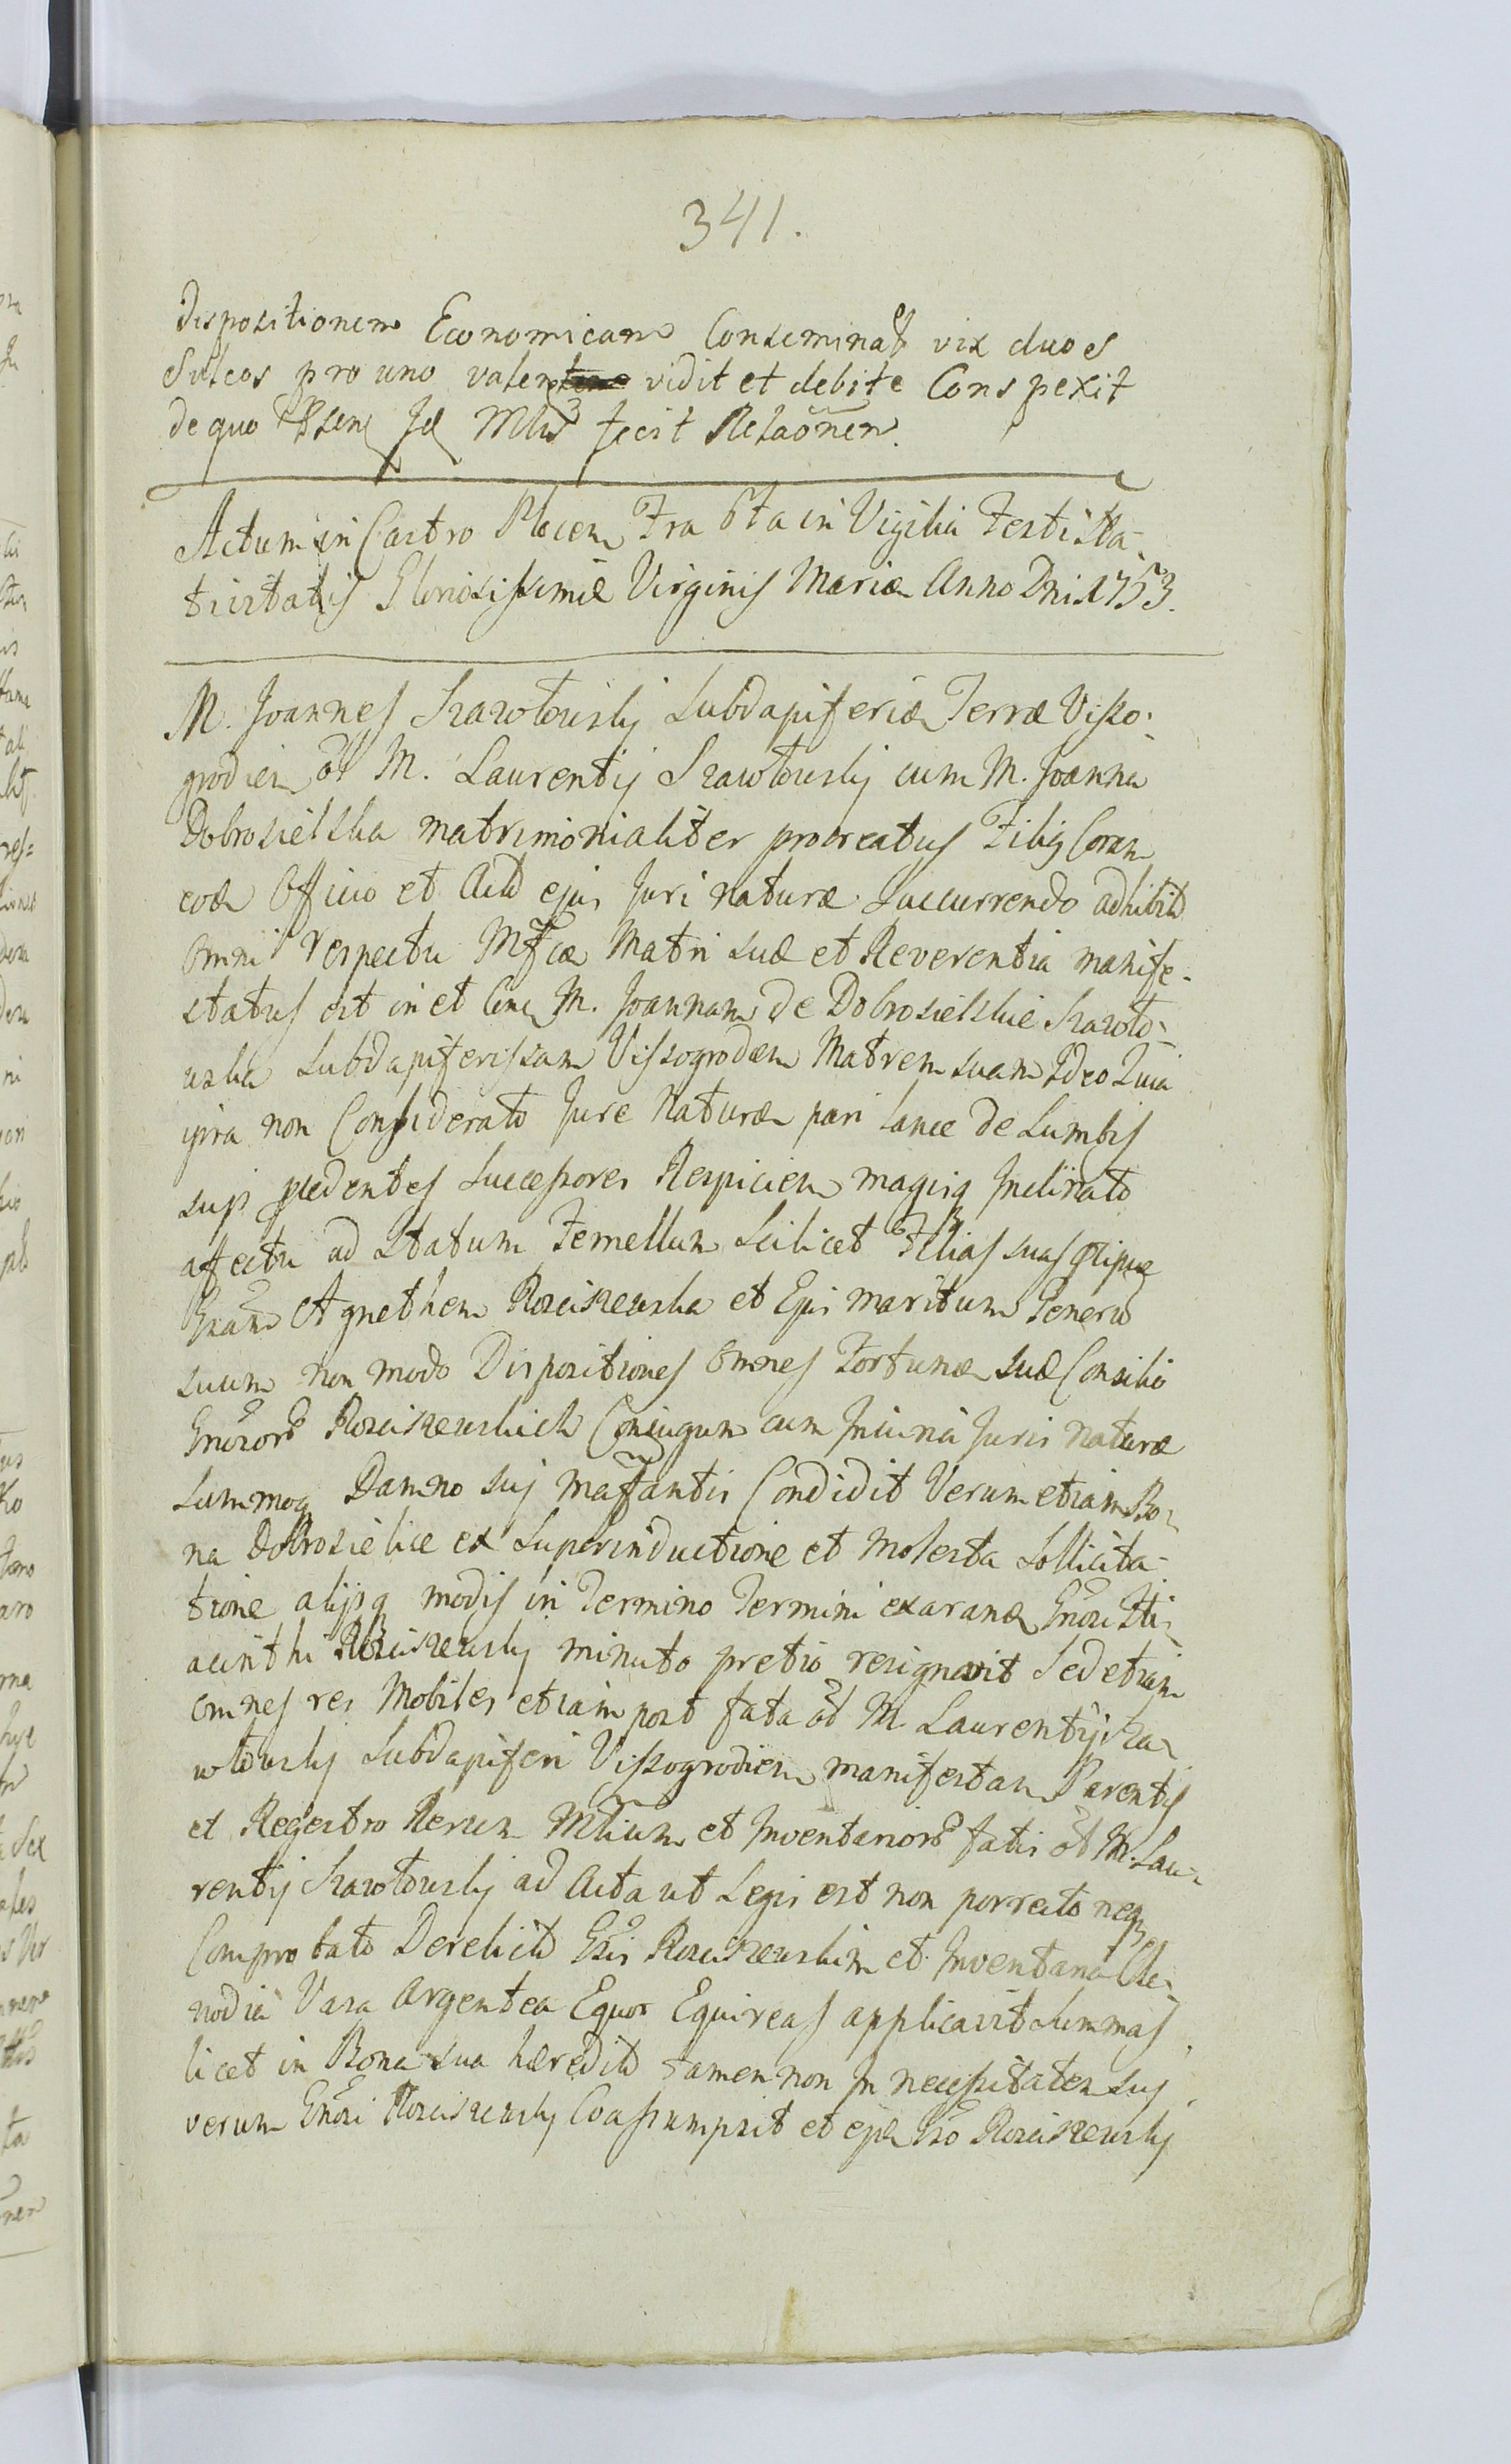 341.
dispositionem Economicam Conseminat vix duos
Sulcos pro uno valen vidit et debite Conspexit
de quo Psens Id Mlis fecit Relaõnem.
Actum in Castro Plocen Fra 6ta in Vigilia Festi Na-
tivitatis Gloriosissimæ Virginis Mariæ Anno Dni 1753.
M. Joannes Szawłowsky Subdapiferid Terræ Visso-
grodien ol M. Laurentij Szawłowsky cum M. Joanna
Dobrosielska matrimonialiter procreatus Filig Coram
eod Officio et Actis ejus Juri naturæ Succurrendo adhibito
omni respectu Mfcæ Matri suæ et Reverentia manife-
status est in et Cone M. Joannam de Dobrosielskie Szawło-
uska Subdapiferissam Vissogroden Matrem suam Ideo Quia
ipsa non Considerato Jure Naturæ pari lance de Lumbis
suis pcedentes Successores Respicien magisq Inclinato
affectu ad Statum Femellum Scilicet Filias suas
Gnãm Agnethem Rosciszewska et Ejus maritum Generu
suum non modo Dispositiones Omnes Fortunæ suæ Consilio
Gnõsorõ Rosciszewskich Coniugum cum Iniuria Juris naturæ
summoq Damno sui mãfantis Condidit Verum etiam Bo-
na Dobrosielice ex Superinductione et molesta Sollicita-
tione alijsq modis in Termino Termini exarand Gnõsi Hi-
acinthi Rosciszewsky minuto pretio resignavit Sed etiam
omnes res Mobiles etiam post fata ol M. Laurentij Sza-
włowsky Subdapiferi Vissogrodien manifestan Parentis
et Regestro Rerum Mlium et Inventariorõ fatis ol M. Lau-
rentij Szawłowsky ad Acta ut Legis est non porrecto neq
Comprobato Derelicto Gsis Rosciszewskim et Inventaria Cle-
nodia Vasa Argentea Equos Equireas applicavit Summas
licet in Bona sua hæredit tamen non In necessitatem suj
verum Gnõsi Rosciszewsky Coassumpsit et ejd Gso Rosciszewsky